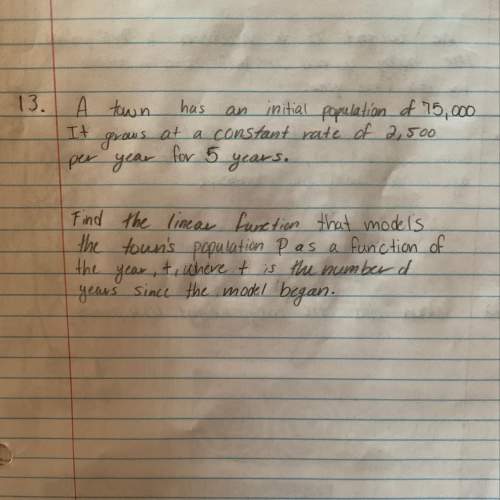 13. A town has an initial population of 75,000
It grows at a constant rate of 2,500
per year for 5 years.
Find the linear function that models
the town's population P as a function of
the year, t, where t is the number of
years since the model began.